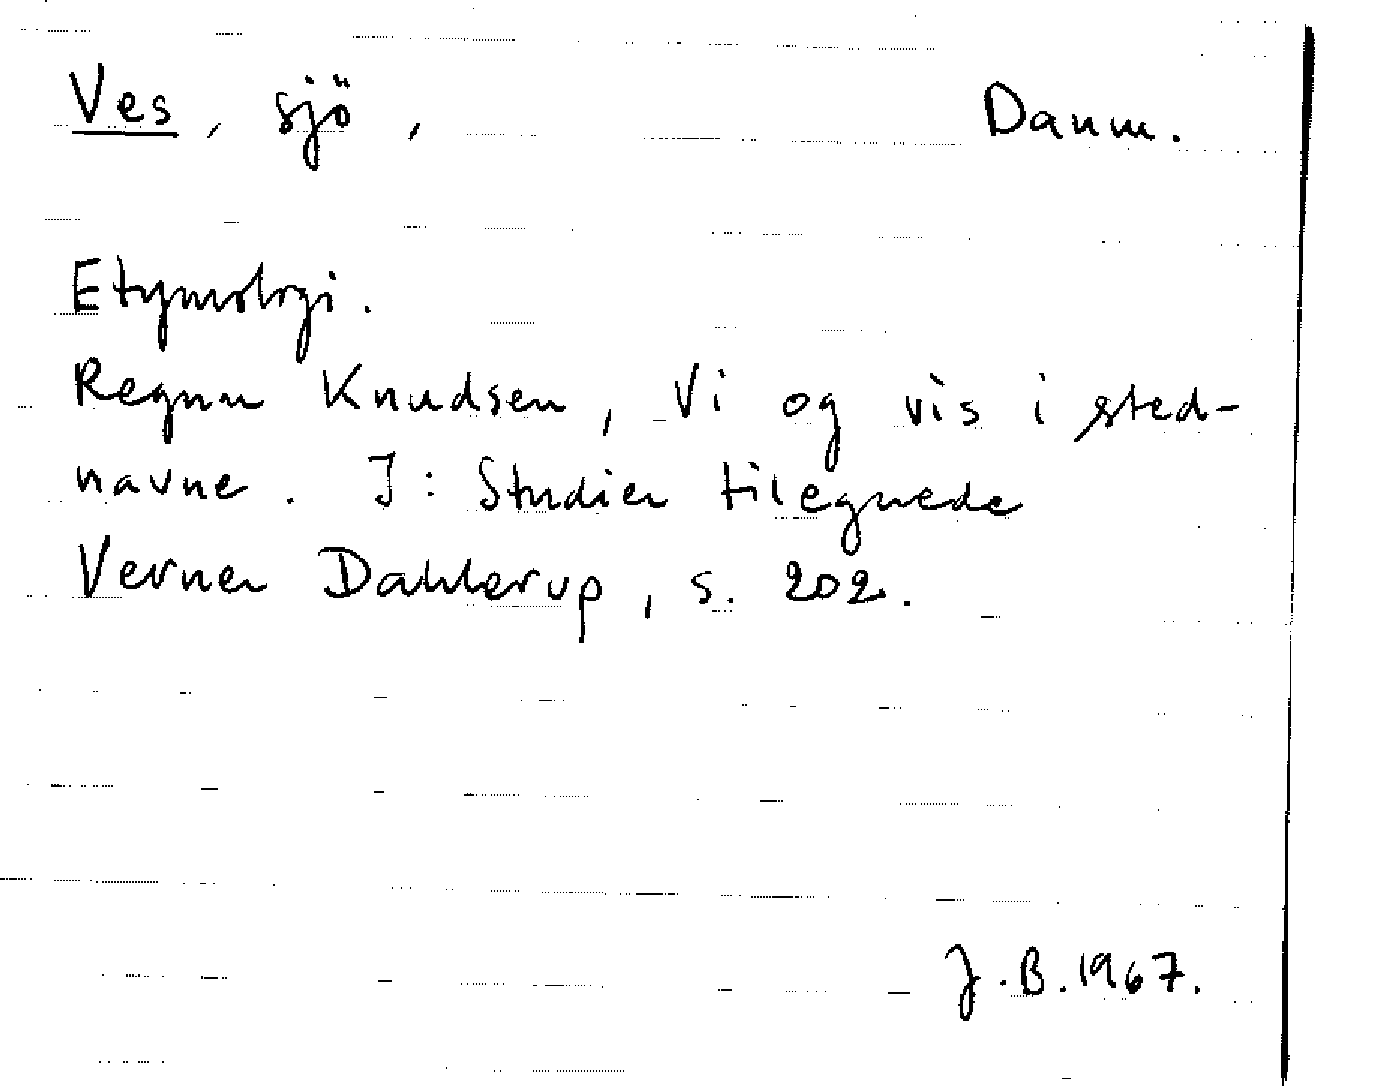 Ves, sjö, Danm.
Etymologi.
Regnar Knudsen, Vi og vis i sted-
navne. I: Studier tilegnede
Verner Dahlerup, s. 202.
J.B.1967.